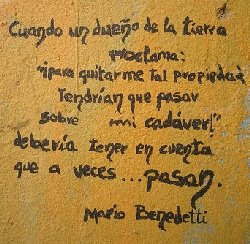 Cuando un dueño de la tierra
proclama:
"¡para quitarme tal propiedad
Tendrían que pasar
sobre mi cadáver!"
debería tener en cuenta
que a veces... pasan.
Mario Benedetti